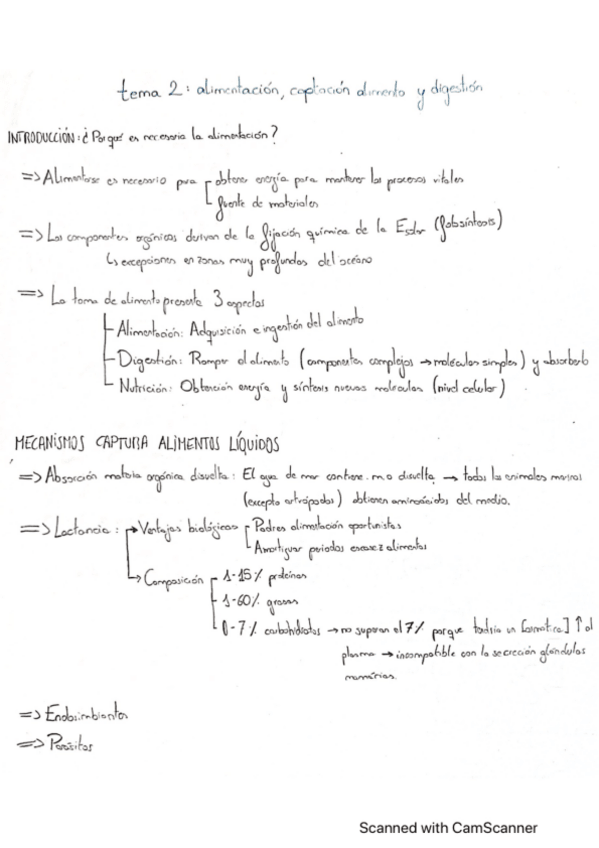 tema 2: alimentación, captación alimento y digestión
INTRODUCCIÓN: ¿Por qué es necesaria la alimentación?
=> Alimentarse es necesario para obtener energía para mantener los procesos vitales
fuente de materiales
=> Los componentes orgánicos derivan de la fijación química de la E solar (fotosíntesis)
↳ excepciones en zonas muy profundas del océano
=> La toma de alimento presenta 3 aspectos
Alimentación: Adquisición e ingestión del alimento
Digestión: Romper el alimento (componentes complejos → moléculas simples) y absorberlo
Nutrición: Obtención energía y síntesis nuevas moléculas (nivel celular)
MECANISMOS CAPTURA ALIMENTOS LÍQUIDOS
=> Absorción materia orgánica disuelta: El agua de mar contiene m.o disuelta → todos los animales marinos
(excepto artrópodos) obtienen aminoácidos del medio.
=> Lactancia: → Ventajas biológicas Padres alimentación oportunistas
Amortiguar periodos escasez alimentos
→ Composición 1-15% proteínas
1-60% grasas
0-7% carbohidratos → no superan el 7% porque tendría un [osmótica] ↑ al
plasma → incompatible con la secreción glándulas
mamarias.
=> Endosimbiontes
=> Parásitos
Scanned with CamScanner